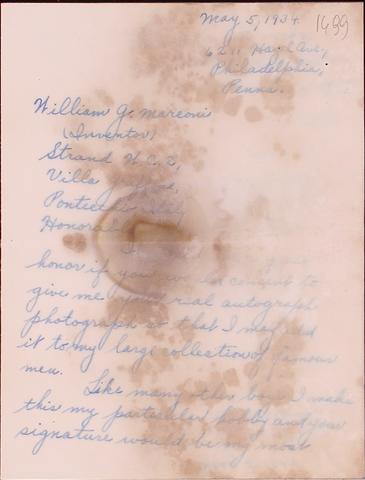 May 5, 1934. 1499
Ave,
Philadelphia,
Penna.
William G. Marconi
(Inventor)
Strand W.C. 2,
Villa
Honor
I
honor if you consent to
give me your autograph
photograph so that I may add
it to my large collection of famous
men.
Like many other boys I make
this my particular hobby and your
signature would be my most